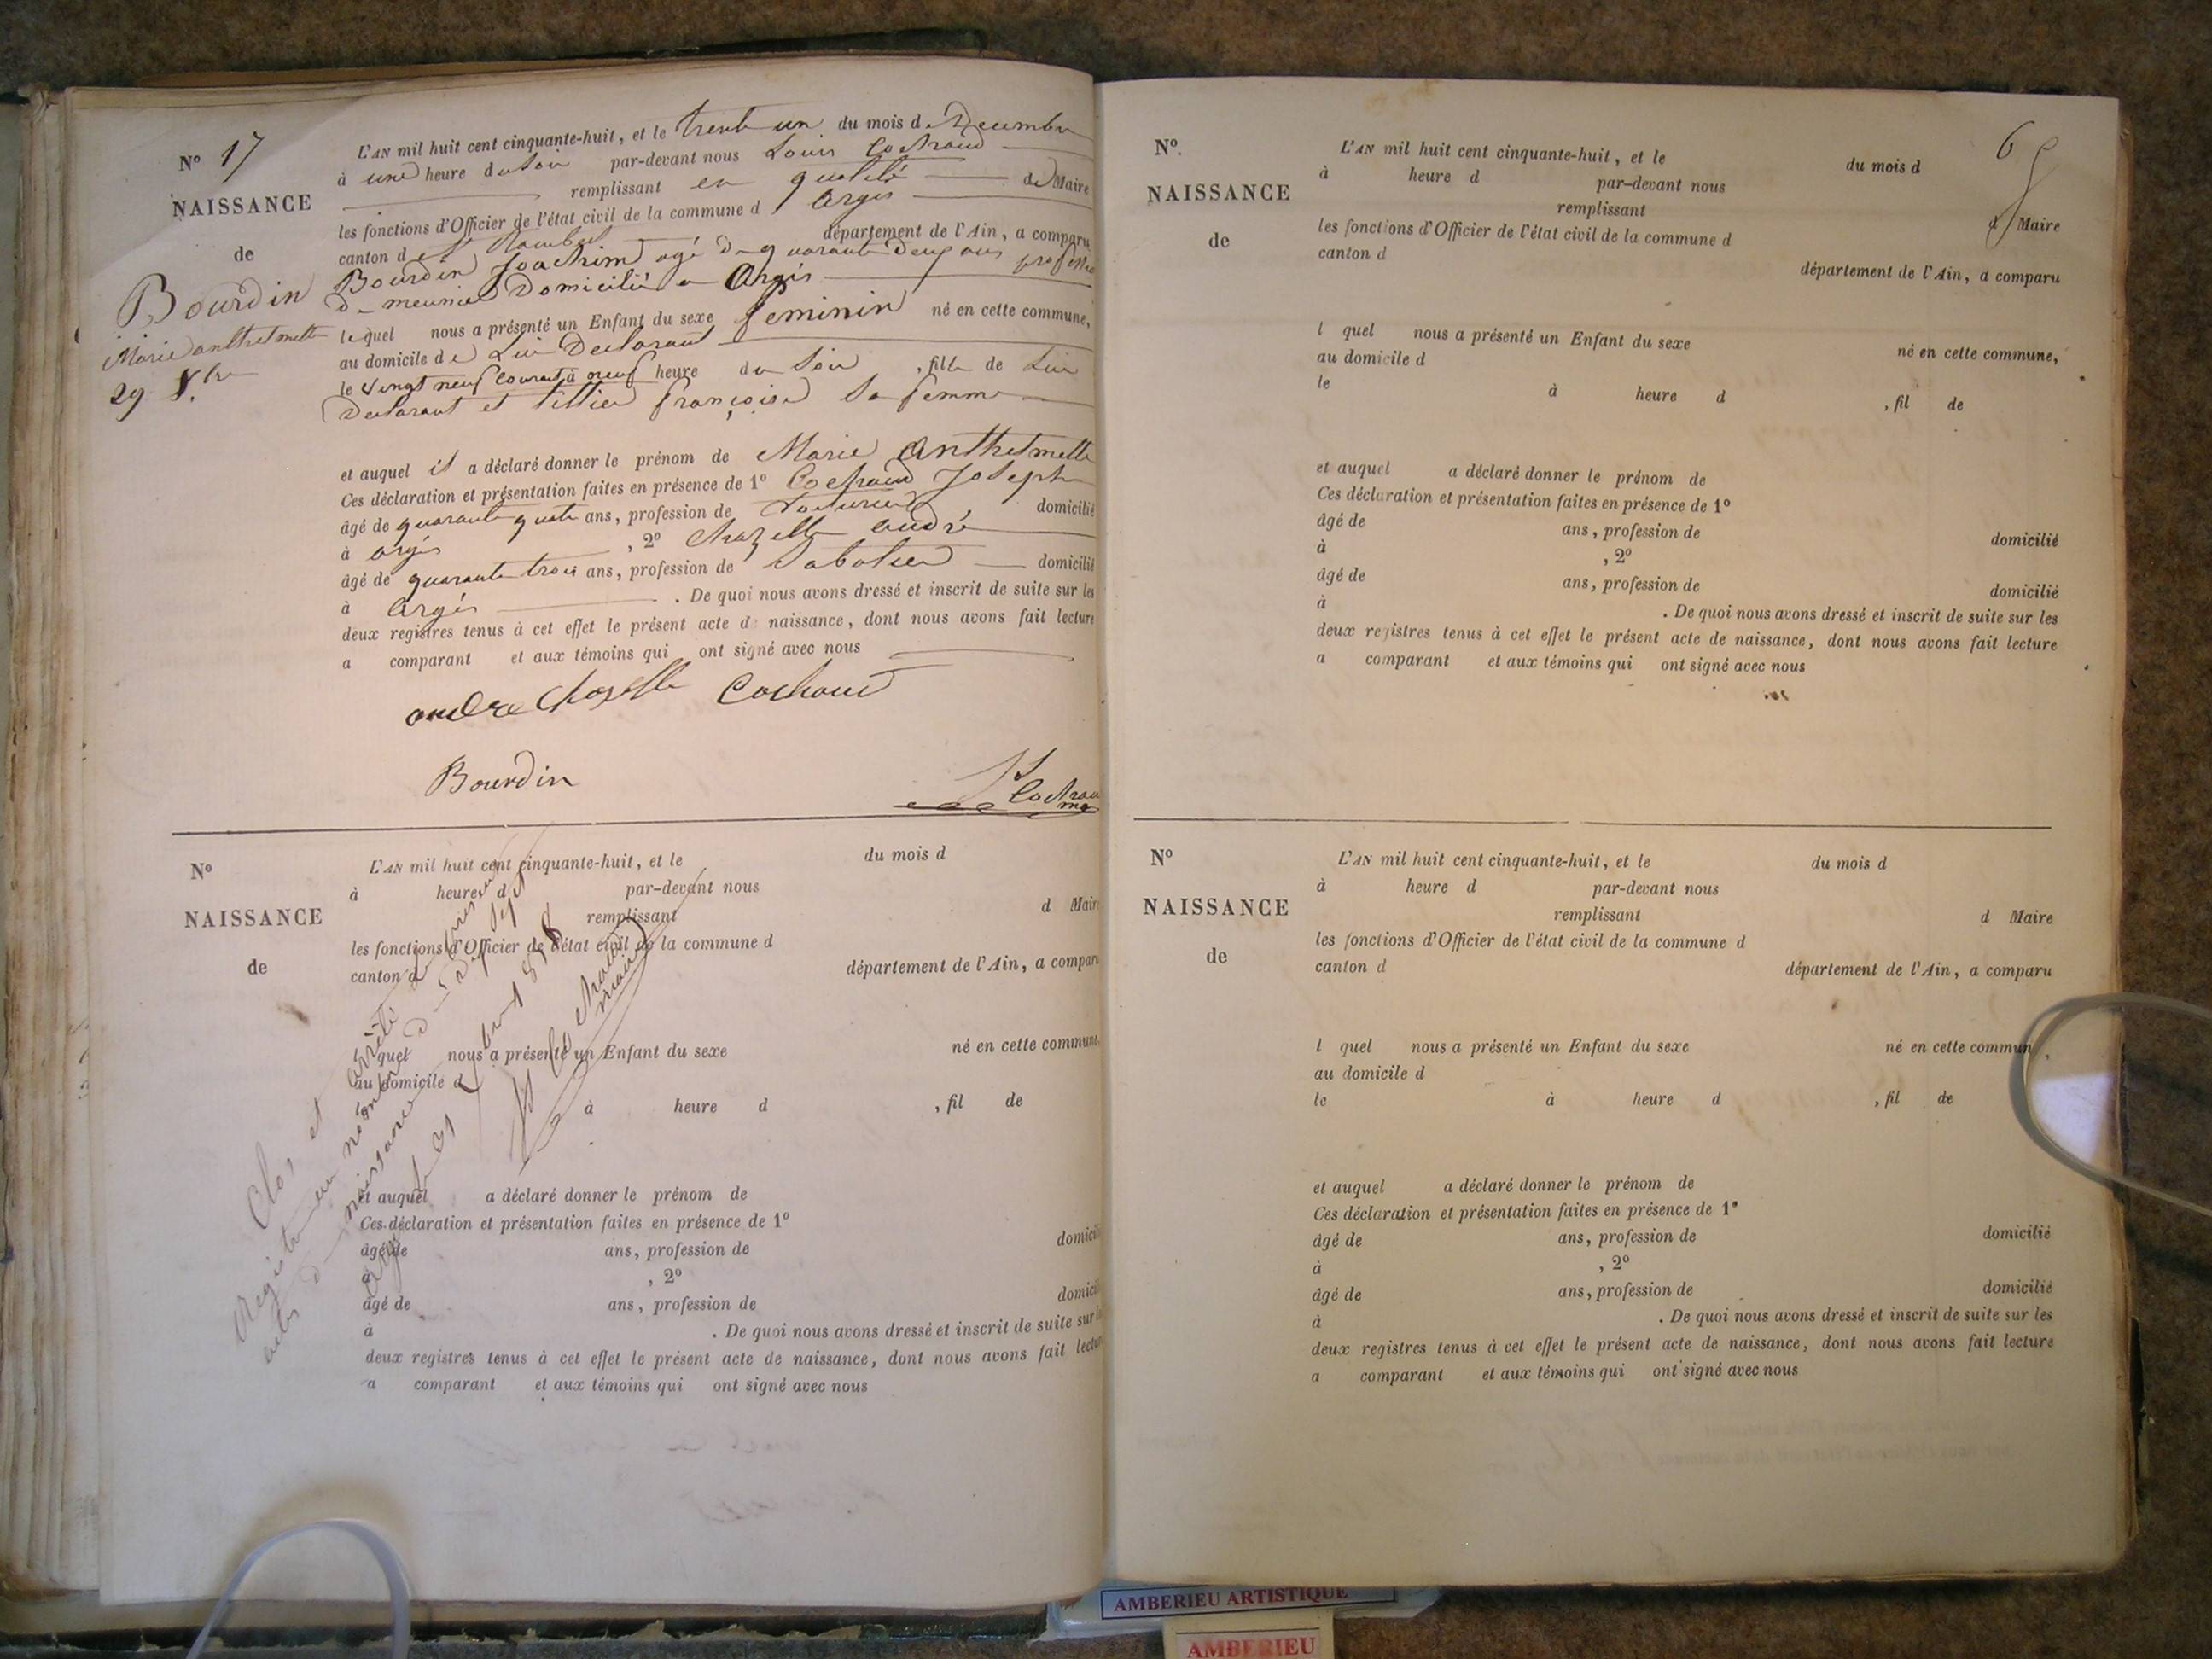 N° 17
NAISSANCE
de
Bourdin
Marie anthelmette
29 Xbre
L'AN mil huit cent cinquante-huit, et le trente un du mois de Decembre
à une heure du Soir par-devant nous Louis Cochaud
remplissant en qualité de Maire
les fonctions d'Officier de l'état civil de la commune d Argis
canton de St Rambert département de l'Ain, a comparu
Bourdin Joachim agé de quarante deux ans profession
de meunier Domicilié a Argis
lequel nous a présenté un Enfant du sexe feminin né en cette commune,
au domicile de Lui Declarant
le vingt neuf courant à neuf heure du Soir , fille de Lui
Declarant et Françoise Sa femme
et auquel il a déclaré donner le prénom de Marie Anthelmette
Ces déclaration et présentation faites en présence de 1° Cochaud Joseph
âgé de quarante quatre ans, profession de domicilié
à argis , 2° Chazelle andré
âgé de quarante trois ans, profession de Sabotier domicilié
à Argis . De quoi nous avons dressé et inscrit de suite sur les
deux registres tenus à cet effet le présent acte de naissance, dont nous avons fait lecture
a comparant et aux témoins qui ont signé avec nous
andre Chazelle Cochaud
Bourdin
Cochaud
N°
NAISSANCE
de
L'AN mil huit cent cinquante-huit, et le du mois d
à heure d par-devant nous
remplissant d Maire
les fonctions d'Officier de l'état civil de la commune d
canton d département de l'Ain, a comparu
l quel nous a présenté un Enfant du sexe né en cette commune,
au domicile d
à heure d , fil de
et auquel a déclaré donner le prénom de
Ces déclaration et présentation faites en présence de 1°
âgé de ans, profession de domicilié
à , 2°
âgé de ans, profession de domicilié
à . De quoi nous avons dressé et inscrit de suite sur les
deux registres tenus à cet effet le présent acte de naissance, dont nous avons fait lecture
a comparant et aux témoins qui ont signé avec nous
Clos et arrêté
naissance
N°.
NAISSANCE
de
L'AN mil huit cent cinquante-huit, et le du mois d
à heure d par-devant nous
remplissant d Maire
les fonctions d'Officier de l'état civil de la commune d
canton d département de l'Ain, a comparu
l quel nous a présenté un Enfant du sexe né en cette commune,
au domicile d
le à heure d , fil de
et auquel a déclaré donner le prénom de
Ces déclaration et présentation faites en présence de 1°
âgé de ans, profession de domicilié
à , 2°
âgé de ans, profession de domicilié
à . De quoi nous avons dressé et inscrit de suite sur les
deux registres tenus à cet effet le présent acte de naissance, dont nous avons fait lecture
a comparant et aux témoins qui ont signé avec nous
N°
NAISSANCE
de
L'AN mil huit cent cinquante-huit, et le du mois d
à heure d par-devant nous
remplissant d Maire
les fonctions d'Officier de l'état civil de la commune d
canton d département de l'Ain, a comparu
l quel nous a présenté un Enfant du sexe né en cette commun ,
au domicile d
le à heure d , fil de
et auquel a déclaré donner le prénom de
Ces déclaration et présentation faites en présence de 1°
âgé de ans, profession de domicilié
à , 2°
âgé de ans, profession de domicilié
à . De quoi nous avons dressé et inscrit de suite sur les
deux registres tenus à cet effet le présent acte de naissance, dont nous avons fait lecture
a comparant et aux témoins qui ont signé avec nous
AMBERIEU ARTISTIQUE
AMBERIEU